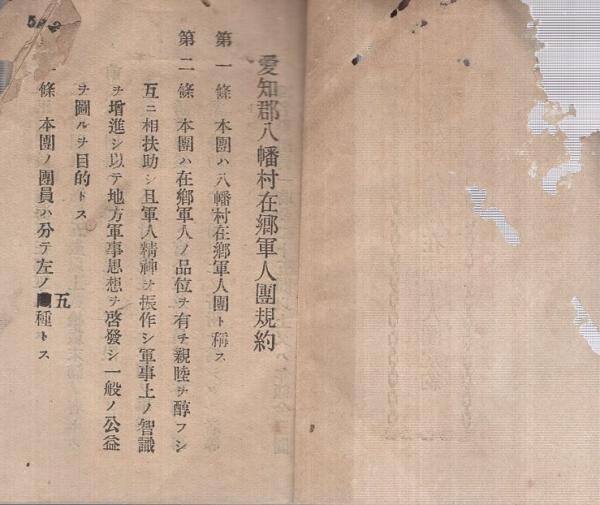 愛知郡八幡村在郷軍人團規約
第一條 本團ハ八幡村在郷軍人團ト稱ス
第二條 本團ハ在郷軍人ノ品位ヲ有チ親睦ヲ醇フシ
互ニ相扶助シ且軍人精神ヲ振作シ軍事上ノ智識
ヲ增進シ以テ地方軍事思想ヲ啓發シ一般ノ公益
ヲ圖ルヲ目的トス
條 本團ノ團員ハ分テ左ノ五種トス